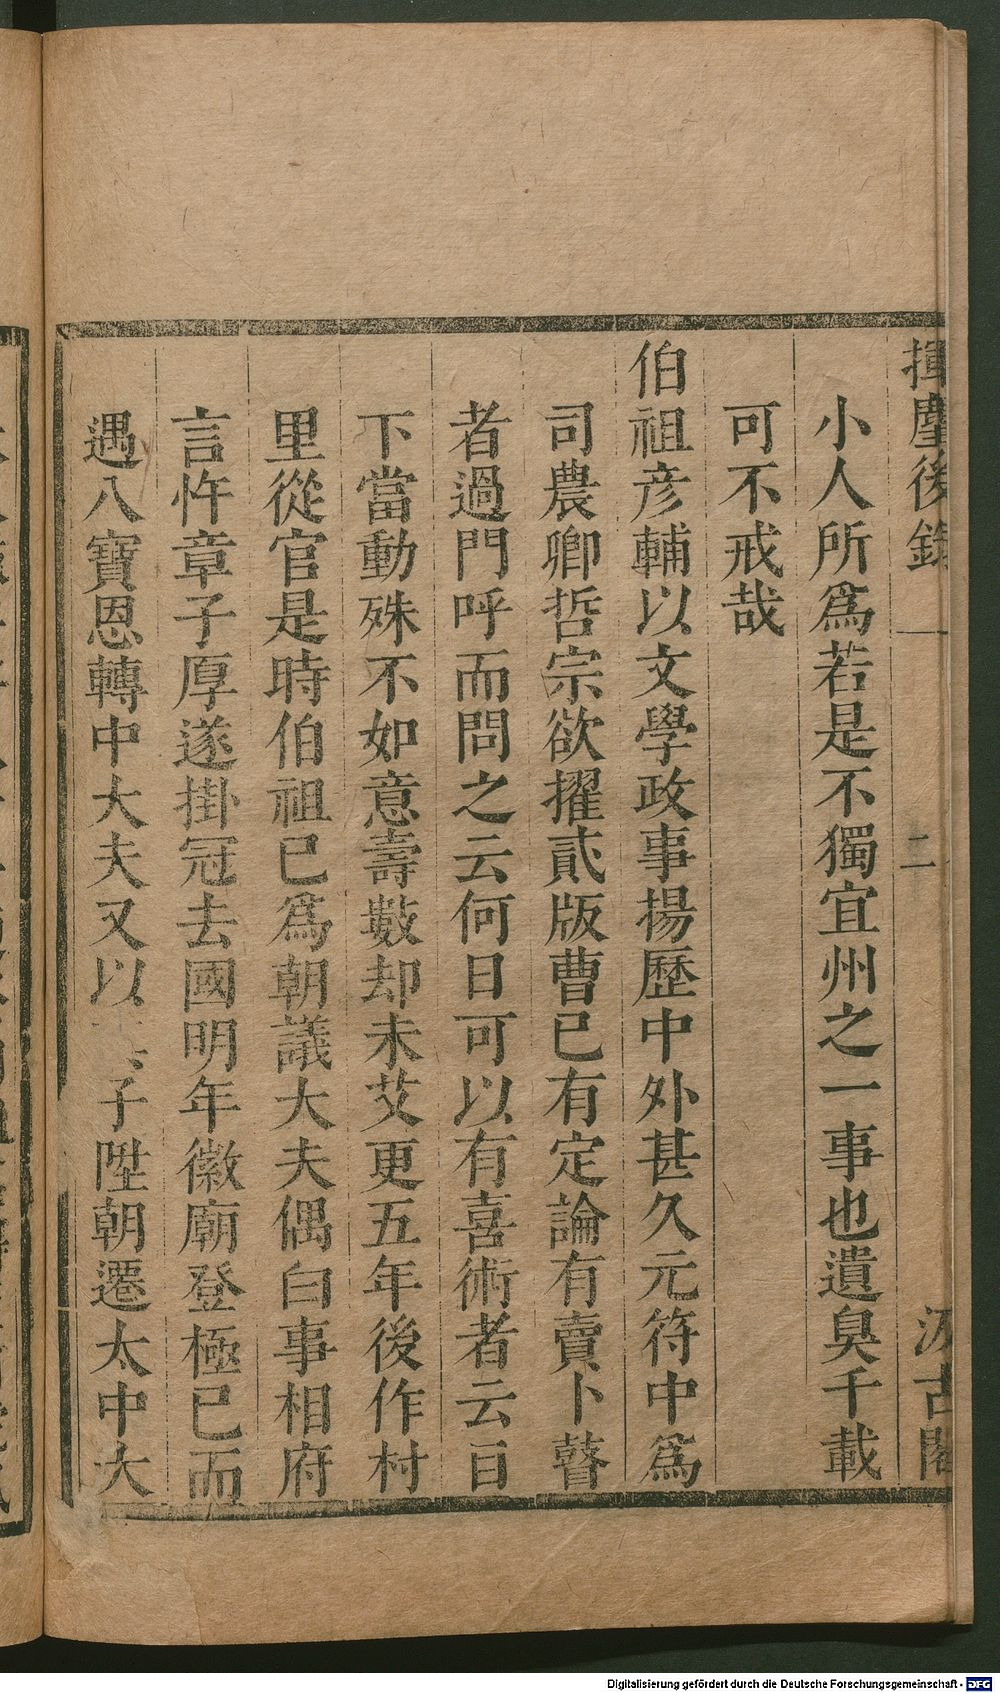 揮麈後錄 二 汲古閣
小人所爲若是不獨宜州之一事也遺臭千載
可不戒哉
伯祖彦輔以文學政事揚歷中外甚久元符中爲
司農卿哲宗欲擢貳版曹已有定論有賣卜瞽
者過門呼而問之云何日可以有喜術者云目
下當動殊不如意壽數却未艾更五年後作村
里從官是時伯祖已爲朝議大夫偶白事相府
言忤章子厚遂掛冠去國明年徽廟登極已而
遇八寶恩轉中大夫又以 子陞朝遷太中大
Digitalisierung gefördert durch die Deutsche Forschungsgemeinschaft - DFG